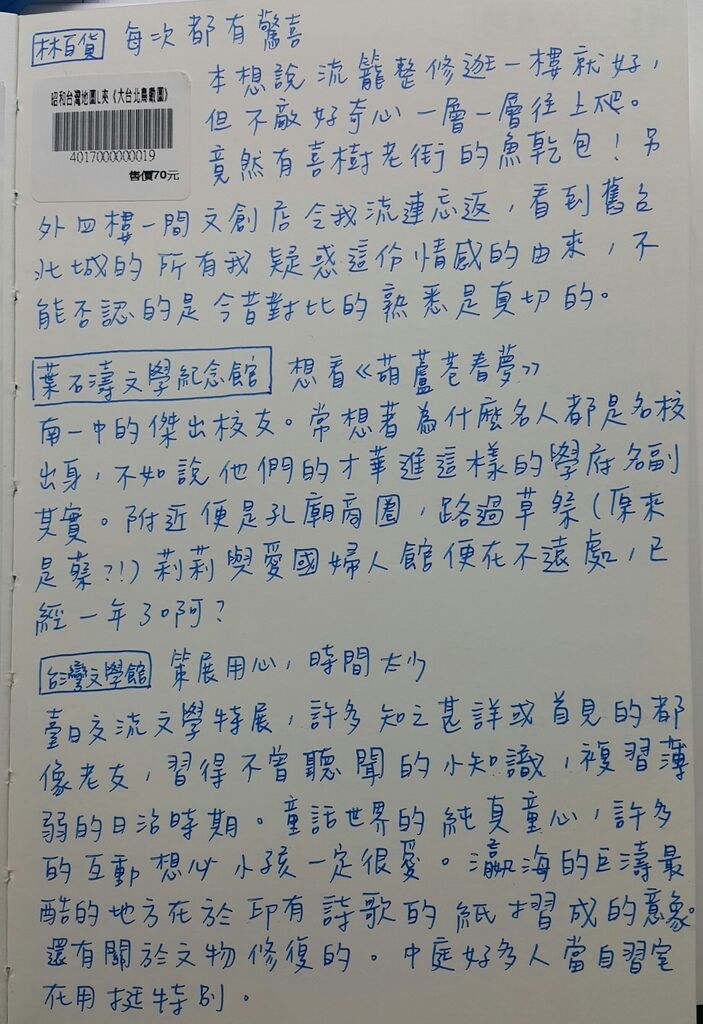 林百貨 每次都有驚喜
昭和台灣地圖L夾《大台北鳥瞰圖》
4017000000019
售價70元
本想說流籠整修逛一樓就好，
但不敵好奇心一層一層往上爬。
竟然有喜樹老街的魚乾包！另
外四樓一間文創店令我流連忘返，看到舊台
北城的所有我疑惑這份情感的由來，不
能否認的是今昔對比的熟悉是真切的。
葉石濤文學紀念館 想看《葫蘆巷春夢》
南一中的傑出校友。常想著為什麼名人都是名校
出身，不如說他們的才華進這樣的學府名副
其實。附近便是孔廟商圈，路過草祭（原來
是蔡?!）莉莉與愛國婦人館便在不遠處，已
經一年了啊？
台灣文學館 策展用心，時間太少
臺日交流文學特展，許多知之甚詳或首見的都
像老友，習得不曾聽聞的小知識，複習薄
弱的日治時期。童話世界的純真童心，許多
的互動想必小孩一定很愛。瀛海的巨濤最
酷的地方在於印有詩歌的紙摺成的意象。
還有關於文物修復的。中庭好多人當自習室
在用挺特別。